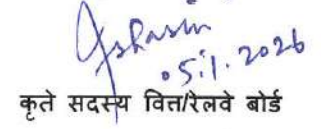 05.1.2026
कृते सदस्य वित्त/रेलवे बोर्ड